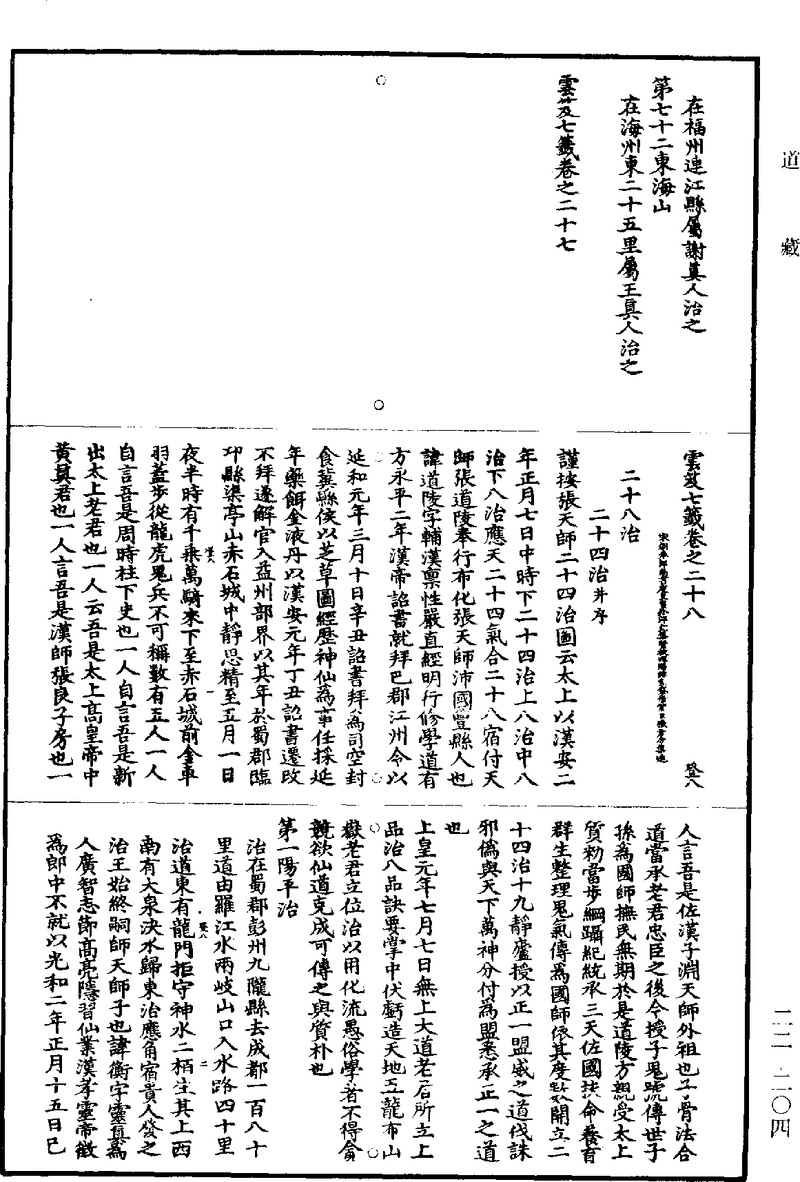 道藏
在福州連江縣屬謝真人治之
第七十二東海山
在海州東二十五里屬王真人治之
雲笈七籤卷之二十七
雲笈七籤卷之二十八
登八
二十八治
二十四治并序
謹按張天師二十四治圖云太上以漢安二
年正月七日中時下二十四治上八治中八
治下八治應天二十四氣合二十八宿付天
師張道陵奉行布化張天師沛國豐縣人也
諱道陵字輔漢禀性嚴直經明行修學道有
方永平二年漢帝詔書就拜巴郡江州令以
延和元年三月十日辛丑詔書拜為司空封
食冀縣侯以芝草圖經歷神仙為事任採延
年藥餌金液丹以漢安元年丁丑詔書遷改
不拜遂解官入益州部界以其年於蜀郡臨
邛縣渠亭山赤石城中靜思精至五月一日
夜半時有千乘萬騎來下至赤石城前金車
羽蓋步從龍虎鬼兵不可稱數有五人一人
自言吾是周時柱下史也一人自言吾是新
出太上老君也一人云吾是太上高皇帝中
黃真君也一人言吾是漢師張良子房也一
人言吾是佐漢子淵天師外祖也子骨法合
道當承老君忠臣之後今授子鬼號傳世子
孫為國師撫民無期於是道陵方親受太上
質勑當步綱躡紀統承三天佐國扶命養育
群生整理鬼氣傳為國師依其度數開立二
十四治十九靜廬授以正一盟威之道伐誅
邪偽與天下萬神分付為盟悉承正一之道
也
上皇元年七月七日無上大道老君所立上
品治八品訣要掌中伏虧造天地五龍布山
嶽老君立位治以用化流愚俗學者不得貪
競欲仙道克成可傳之與質朴也
第一陽平治
治在蜀郡彭州九隴縣去成都一百八十
里道由羅江水兩岐山口入水路四十里
治道東有龍門拒守神水二栢生其上西
南有大泉決水歸東治應角宿貴人發之
治王始終嗣師天師子也諱衡字靈真為
人廣智志節高亮隱習仙業漢孝靈帝徵
為郎中不就以光和二年正月十五日巳
二二-二〇四